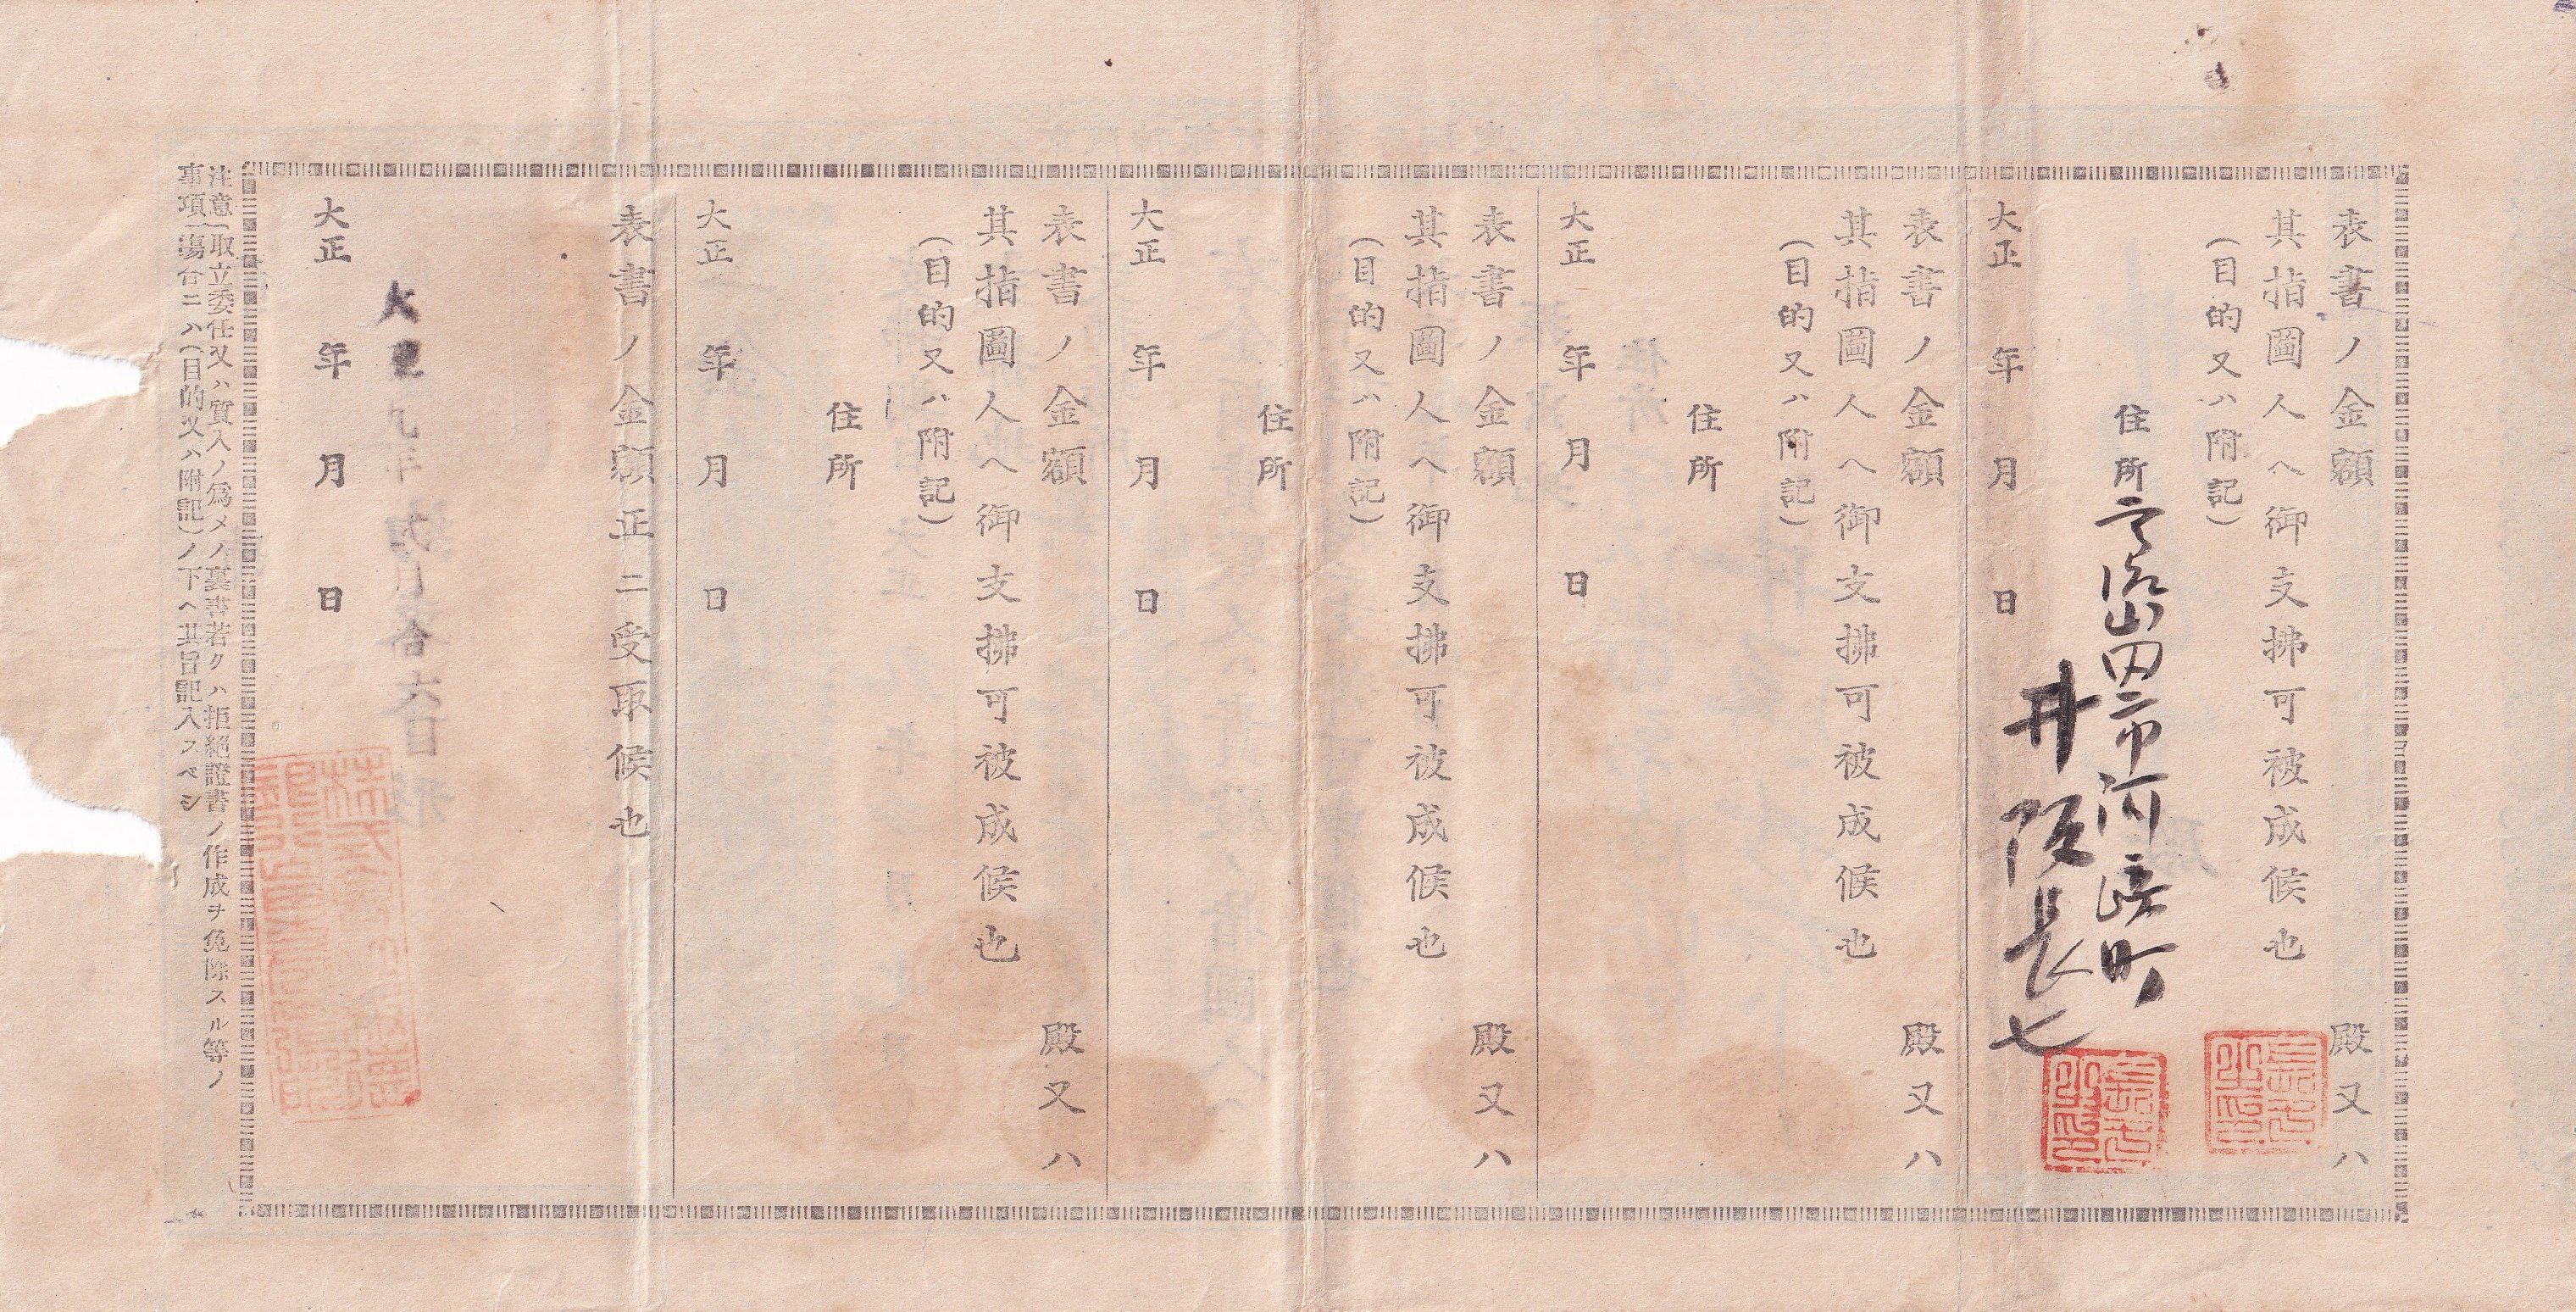 表書ノ金額
殿又ハ
其指圖人ヘ御支拂可被成候也
(目的又ハ附記)
住所 宇治山田市河崎町
井阪長七
大正 年 月 日
表書ノ金額
殿又ハ
其指圖人ヘ御支拂可被成候也
(目的又ハ附記)
住所
大正 年 月 日
表書ノ金額
殿又ハ
其指圖人ヘ御支拂可被成候也
(目的又ハ附記)
住所
大正 年 月 日
表書ノ金額
殿又ハ
其指圖人ヘ御支拂可被成候也
(目的又ハ附記)
住所
大正 年 月 日
表書ノ金額正ニ受取候也
大正 年 月 日
注意(取立委任又ハ質入ノ爲メノ裏書若クハ拒絕證書ノ作成ヲ免除スル等ノ
事項(塲合ニハ(目的又ハ附記)ノ下ヘ其旨記入スベシ